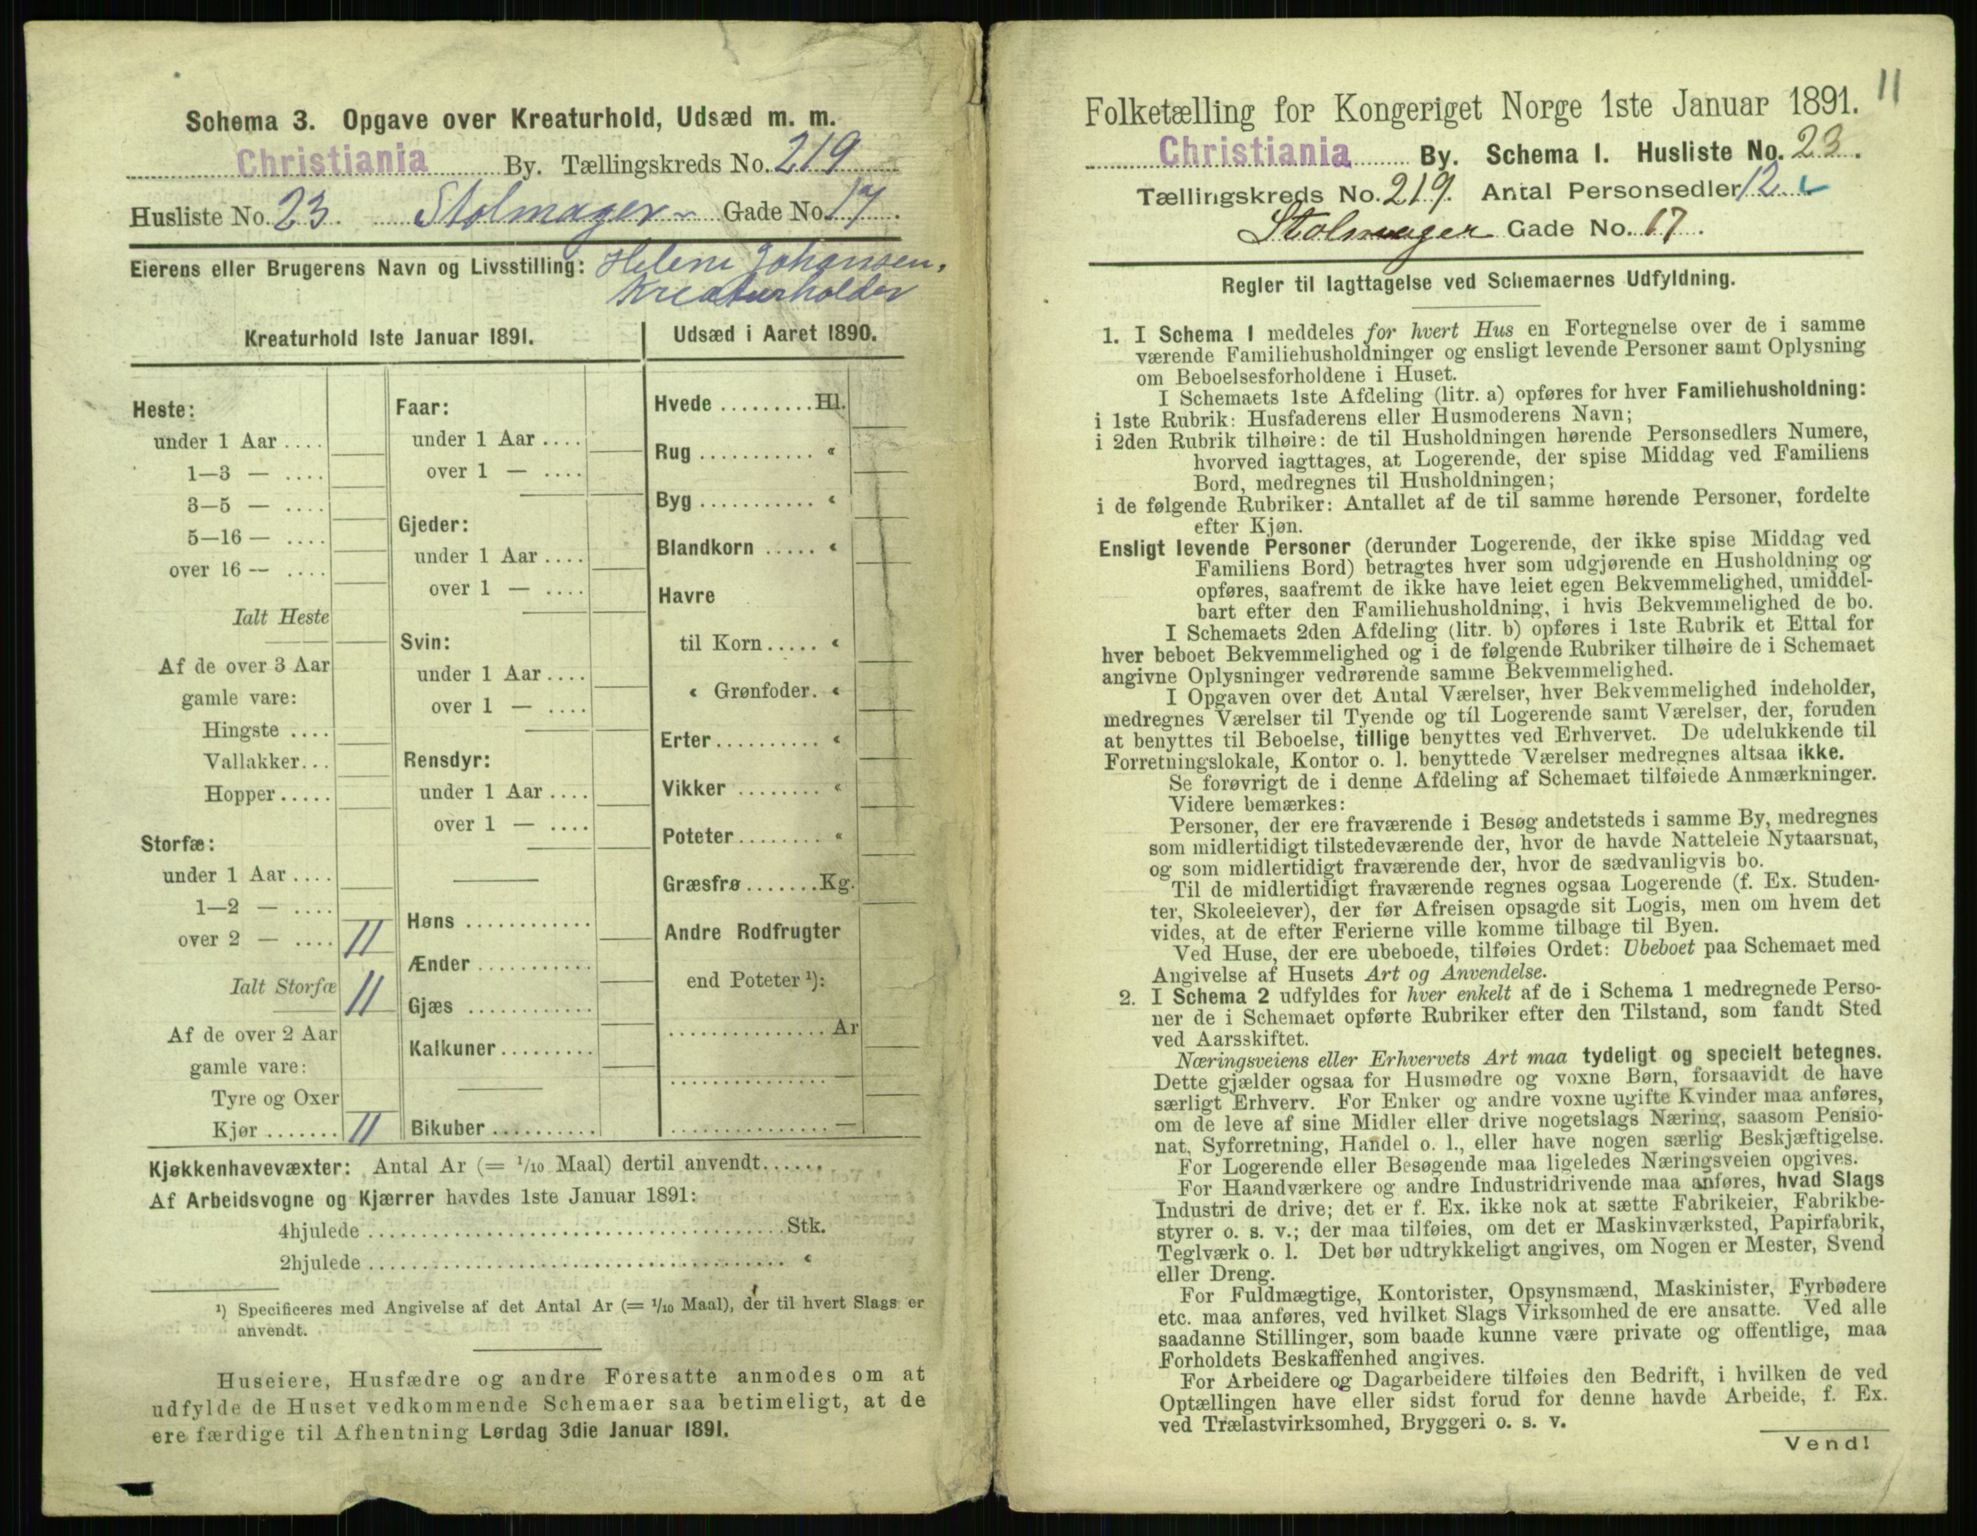 Schema 3. Opgave over Kreaturhold, Udsæd m. m.
Christiania By. Tællingskreds No. 219
Husliste No. 23. Stolmager Gade No. 17.
Eierens eller Brugerens Navn og Livsstilling: Helene Johansen.
Kreaturholder
Kreaturhold 1ste Januar 1891.
Heste:
under 1 Aar ....
1—3 — ....
3—5 — ....
5—16 — ....
over 16 — ....
Ialt Heste
Af de over 3 Aar
gamle vare:
Hingste ....
Vallakker...
Hopper.....
Storfæ:
under 1 Aar ....
1—2 — ....
over 2 — .... 11
Ialt Storfæ 11
Af de over 2 Aar
gamle vare:
Tyre og Oxer
Kjør ....... 11
Faar:
under 1 Aar ....
over 1 — ....
Gjeder:
under 1 Aar ....
over 1 — ....
Svin:
under 1 Aar ....
over 1 — ....
Rensdyr:
under 1 Aar ....
over 1 — ....
Høns ............
Ænder ...........
Gjæs ............
Kalkuner.........
Bikuber ..........
Udsæd i Aaret 1890.
Hvede .........Hl.
Rug ........... «
Byg ........... «
Blandkorn ..... «
Havre
til Korn ..... «
« Grønfoder. «
Erter.......... «
Vikker ........ «
Poteter........ «
Græsfrø.......Kg.
Andre Rodfrugter
end Poteter ¹):
............... Ar
............... —
............... —
Kjøkkenhavevæxter: Antal Ar (= 1/10 Maal) dertil anvendt......
Af Arbeidsvogne og Kjærrer havdes 1ste Januar 1891:
4hjulede ....................................Stk.
2hjulede .................................... «
¹) Specificeres med Angivelse af det Antal Ar (= 1/10 Maal), der til hvert Slags er
anvendt.
Huseiere, Husfædre og andre Foresatte anmodes om at
udfylde de Huset vedkommende Schemaer saa betimeligt, at de
ere færdige til Afhentning Lørdag 3die Januar 1891.
11
Folketælling for Kongeriget Norge 1ste Januar 1891.
Christiania By. Schema 1. Husliste No. 23.
Tællingskreds No. 219. Antal Personsedler 12
Stolmager Gade No. 17.
Regler til Iagttagelse ved Schemaernes Udfyldning.
1. I Schema 1 meddeles for hvert Hus en Fortegnelse over de i samme
værende Familiehusholdninger og ensligt levende Personer samt Oplysning
om Beboelsesforholdene i Huset.
I Schemaets 1ste Afdeling (litr. a) opføres for hver Familiehusholdning:
i 1ste Rubrik: Husfaderens eller Husmoderens Navn;
i 2den Rubrik tilhøire: de til Husholdningen hørende Personsedlers Numere,
hvorved iagttages, at Logerende, der spise Middag ved Familiens
Bord, medregnes til Husholdningen;
i de følgende Rubriker: Antallet af de til samme hørende Personer, fordelte
efter Kjøn.
Ensligt levende Personer (derunder Logerende, der ikke spise Middag ved
Familiens Bord) betragtes hver som udgjørende en Husholdning og
opføres, saafremt de ikke have leiet egen Bekvemmelighed, umiddel-
bart efter den Familiehusholdning, i hvis Bekvemmelighed de bo.
I Schemaets 2den Afdeling (litr. b) opføres i 1ste Rubrik et Ettal for
hver beboet Bekvemmelighed og i de følgende Rubriker tilhøire de i Schemaet
angivne Oplysninger vedrørende samme Bekvemmelighed.
I Opgaven over det Antal Værelser, hver Bekvemmelighed indeholder,
medregnes Værelser til Tyende og til Logerende samt Værelser, der, foruden
at benyttes til Beboelse, tillige benyttes ved Erhvervet. De udelukkende til
Forretningslokale, Kontor o. l. benyttede Værelser medregnes altsaa ikke.
Se forøvrigt de i denne Afdeling af Schemaet tilføiede Anmærkninger.
Videre bemærkes:
Personer, der ere fraværende i Besøg andetsteds i samme By, medregnes
som midlertidigt tilstedeværende der, hvor de havde Natteleie Nytaarsnat,
og som midlertidigt fraværende der, hvor de sædvanligvis bo.
Til de midlertidigt fraværende regnes ogsaa Logerende (f. Ex. Studen-
ter, Skoleelever), der før Afreisen opsagde sit Logis, men om hvem det
vides, at de efter Ferierne ville komme tilbage til Byen.
Ved Huse, der ere ubeboede, tilføies Ordet: Ubeboet paa Schemaet med
Angivelse af Husets Art og Anvendelse.
2. I Schema 2 udfyldes for hver enkelt af de i Schema 1 medregnede Perso-
ner de i Schemaet opførte Rubriker efter den Tilstand, som fandt Sted
ved Aarsskiftet.
Næringsveiens eller Erhvervets Art maa tydeligt og specielt betegnes.
Dette gjælder ogsaa for Husmødre og voxne Børn, forsaavidt de have
særligt Erhverv. For Enker og andre voxne ugifte Kvinder maa anføres,
om de leve af sine Midler eller drive nogetslags Næring, saasom Pensio-
nat, Syforretning, Handel o. l., eller have nogen særlig Beskjæftigelse.
For Logerende eller Besøgende maa ligeledes Næringsveien opgives.
For Haandværkere og andre Industridrivende maa anføres, hvad Slags
Industri de drive; det er f. Ex. ikke nok at sætte Fabrikeier, Fabrikbe-
styrer o. s. v.; der maa tilføies, om det er Maskinværksted, Papirfabrik,
Teglværk o. l. Det bør udtrykkeligt angives, om Nogen er Mester, Svend
eller Dreng.
For Fuldmægtige, Kontorister, Opsynsmænd, Maskinister, Fyrbødere
etc. maa anføres, ved hvilket Slags Virksomhed de ere ansatte. Ved alle
saadanne Stillinger, som baade kunne være private og offentlige, maa
Forholdets Beskaffenhed angives.
For Arbeidere og Dagarbeidere tilføies den Bedrift, i hvilken de ved
Optællingen have eller sidst forud for denne havde Arbeide, f. Ex.
ved Trælastvirksomhed, Bryggeri o. s. v.
Vend!